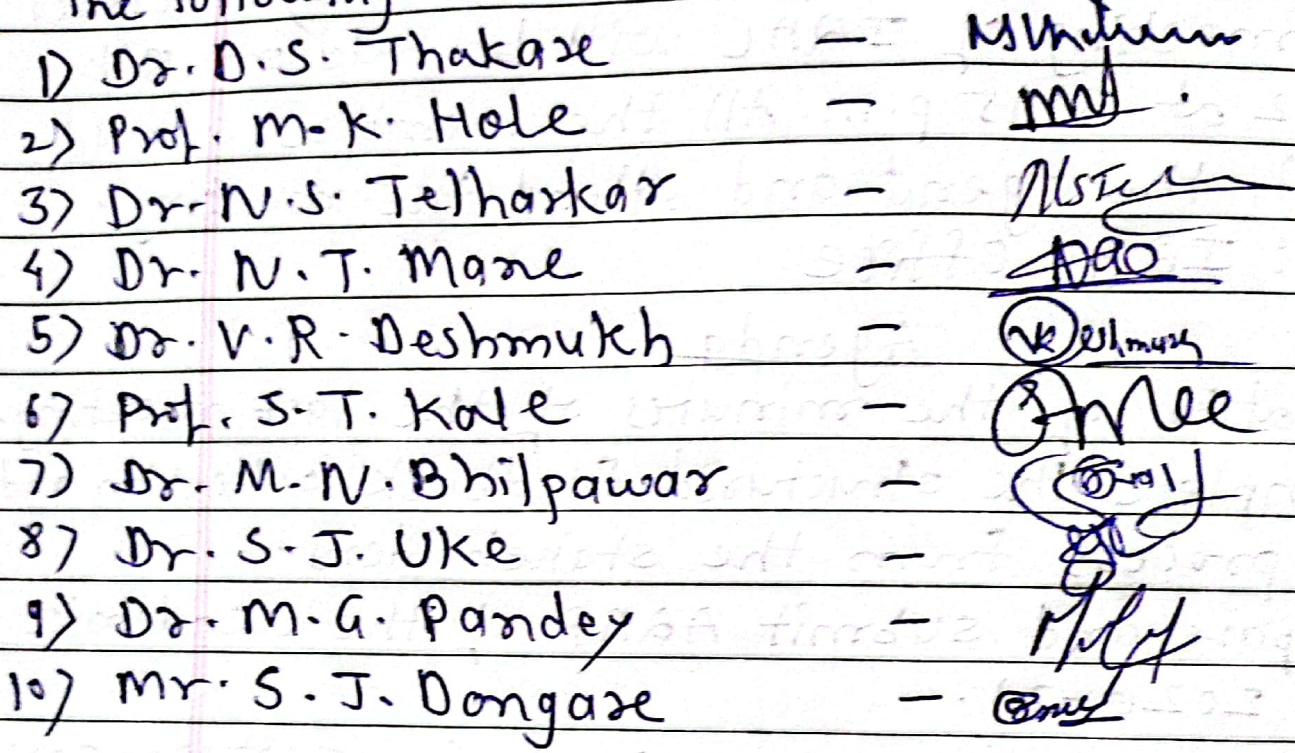 The following
1) Dr. D. S. Thakare -
2) Prof. M. K. Hole -
3) Dr. N. S. Telharkar -
4) Dr. N. T. Mane -
5) Dr. V. R. Deshmukh - VR Deshmukh
6) Prof. S. T. Kale -
7) Dr. M. N. Bhilpawar -
8) Dr. S. J. Uke -
9) Dr. M. G. Pandey -
10) Mr. S. J. Dongare -